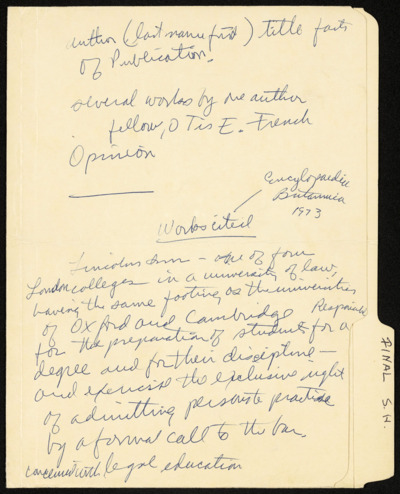 author (last name first) title facts
of Publication.
several works by one author
fellow, OTis E. French
Opinion
Encyclopaedia
Britannica
1973
Works cited
Lincolns Inn - one of four
London colleges in a university of law,
having the same footing as the universities
of Oxford and Cambridge Responsible
for the preparation of students for a
degree and for their discipline -
and exercise the exclusive right
of admitting persons to practise
by a formal call to the bar.
concerned with legal education
FINAL S.W.